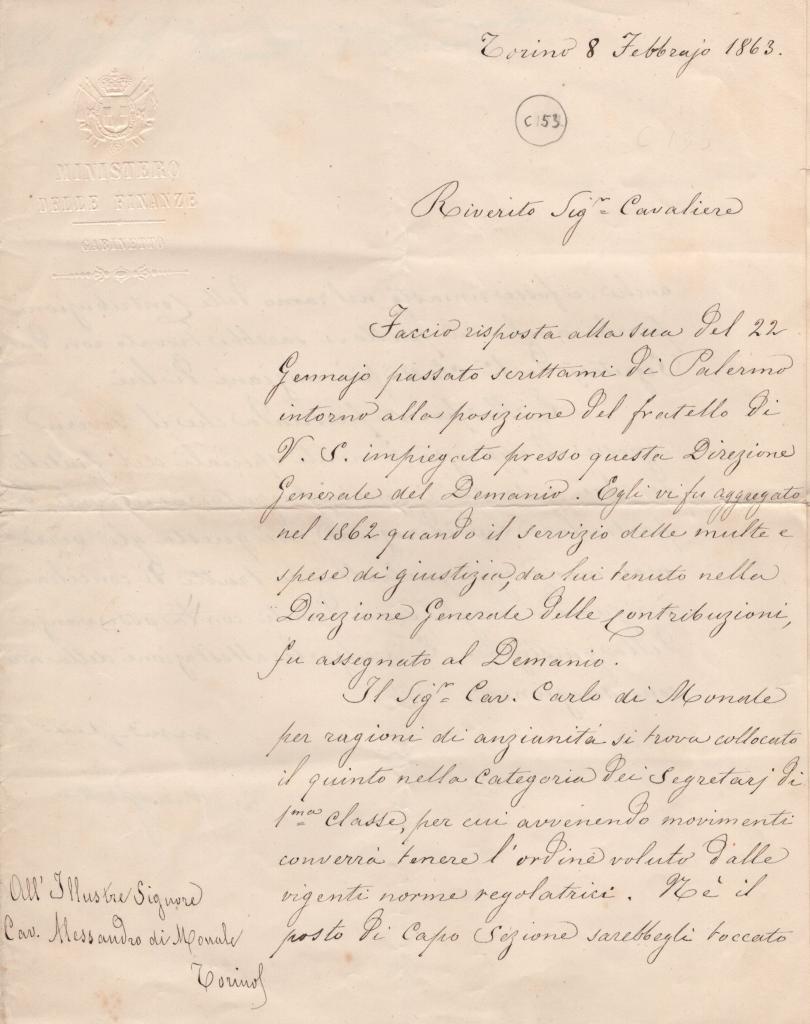 Torino 8 Febbrajo 1863.
C 153
MINISTERO
DELLE FINANZE
GABINETTO
Riverito Sigr. Cavaliere
Faccio risposta alla sua del 22
Gennajo passato scrittami di Palermo
intorno alla posizione del fratello di
V. S. impiegato presso questa Direzione
Generale del Demanio. Egli vi fu aggregato
nel 1862 quando il servizio delle multe e
spese di giustizia, da lui tenuto nella
Direzione Generale delle Contribuzioni,
fu assegnato al Demanio.
Il Sigr. Cav. Carlo di Monale
per ragioni di anzianità si trova collocato
il quinto nella categoria dei Segretarj di
1ma classe, per cui avvenendo movimenti
converrà tenere l'ordine voluto dalle
vigenti norme regolatrici. Nè il
posto di Capo Sezione sarebbegli toccato
All' Illustre Signore
Cav. Alessandro di Monale
Torino